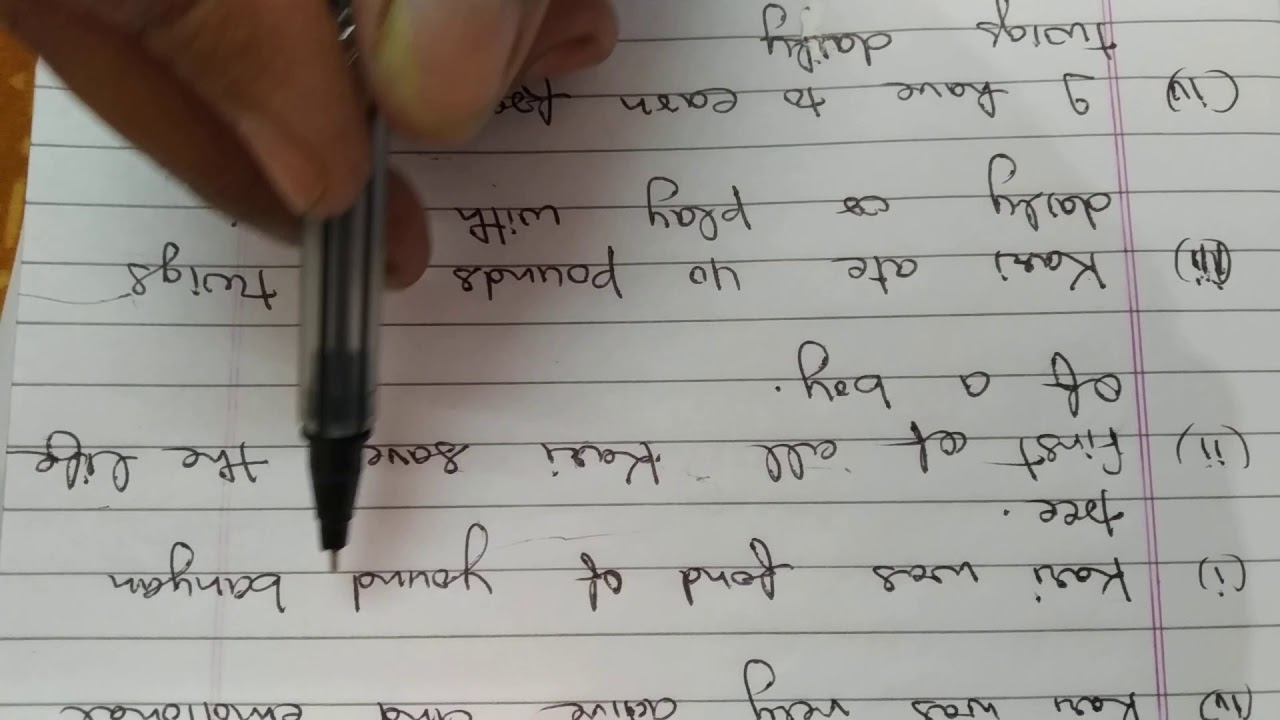 (iv) Kari was very active and emotional
(i) Kari was fond of yound banyan
tree.
(ii) First of all Kari save the life
of a boy.
(iii) Kari ate 40 pounds twigs
daily play with
(iv) I have to earn for
twigs daily